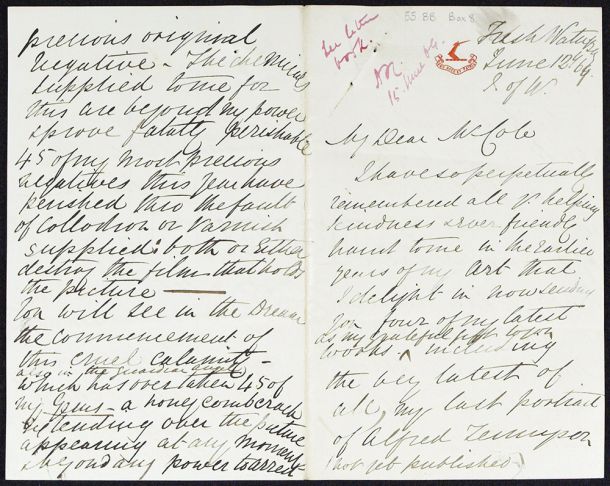 55 BB Box 8
See letter
book.
15 June 69.
Fresh Water
June 12th 69.
I. of W.
My Dear Mr Cole
I have so perpetually
remembered all yr helping
kindness & ever friendly
hand to me in the earlier
years of my Art that
I delight in now sending
You four of my latest
as my grateful gift to you
works including
the very latest of
all, my last portrait
of Alfred Tennyson
not yet published
precious original
negative – The chemicals
supplied to me for
this are beyond my power
& prove fatally perishable
45 of my most precious
negatives this year have
perished thro the fault
of Collodion or Varnish
supplied: both or either
destroy the film that holds
the picture
You will see in the Dream
the commencement of
this cruel calamity –
also in the guardian angel
which has overtaken 45 of
my Gems – a honey comb crack
extending over the picture
appearing at any moment
& beyond any power to arrest